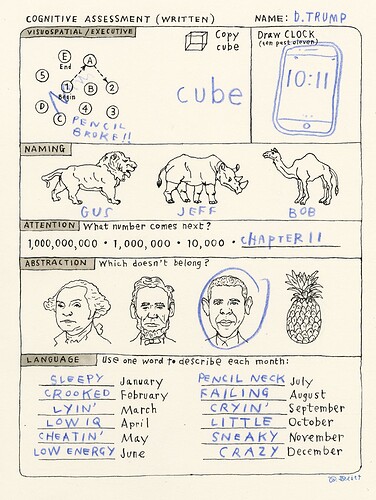 COGNITIVE ASSESSMENT (WRITTEN) NAME: D. TRUMP
VISUOSPATIAL / EXECUTIVE
E
End
A
5
1
Begin
B
2
D
4
3
C
PENCIL
BROKE!!
Copy
cube
cube
Draw CLOCK
(ten past eleven)
10:11
NAMING
GUS JEFF BOB
ATTENTION What number comes next?
1,000,000,000 · 1,000,000 · 10,000 · CHAPTER 11
ABSTRACTION Which doesn't belong?
LANGUAGE Use one word to describe each month:
SLEEPY January
CROOKED February
LYIN' March
LOW IQ April
CHEATIN' May
LOW ENERGY June
PENCIL NECK July
FAILING August
CRYIN' September
LITTLE October
SNEAKY November
CRAZY December